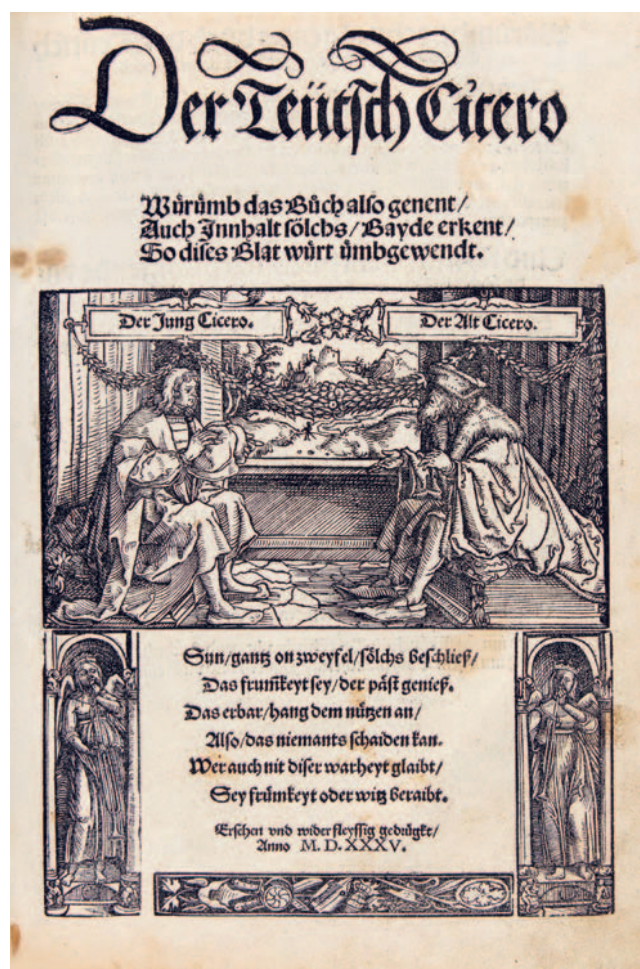 Der Teütsch Cicero
Wůrůmb das Bůch also genent/
Auch Innhalt sölchs/Bayde erkent/
So dises Blat würt ůmbgewendt.
Der Jung Cicero.
Der Alt Cicero.
Sun/gantz on zweyfel/sölchs beschließ/
Das frum̃keyt sey/der påst genieß.
Das erbar/hang dem nützen an/
Also/das niemants schaiden kan.
Wer auch nit diser warheyt glaibt/
Sey frümkeyt oder witz beraibt.
Ersehen vnd wider fleyssig gedrügkt/
Anno M. D. XXXV.